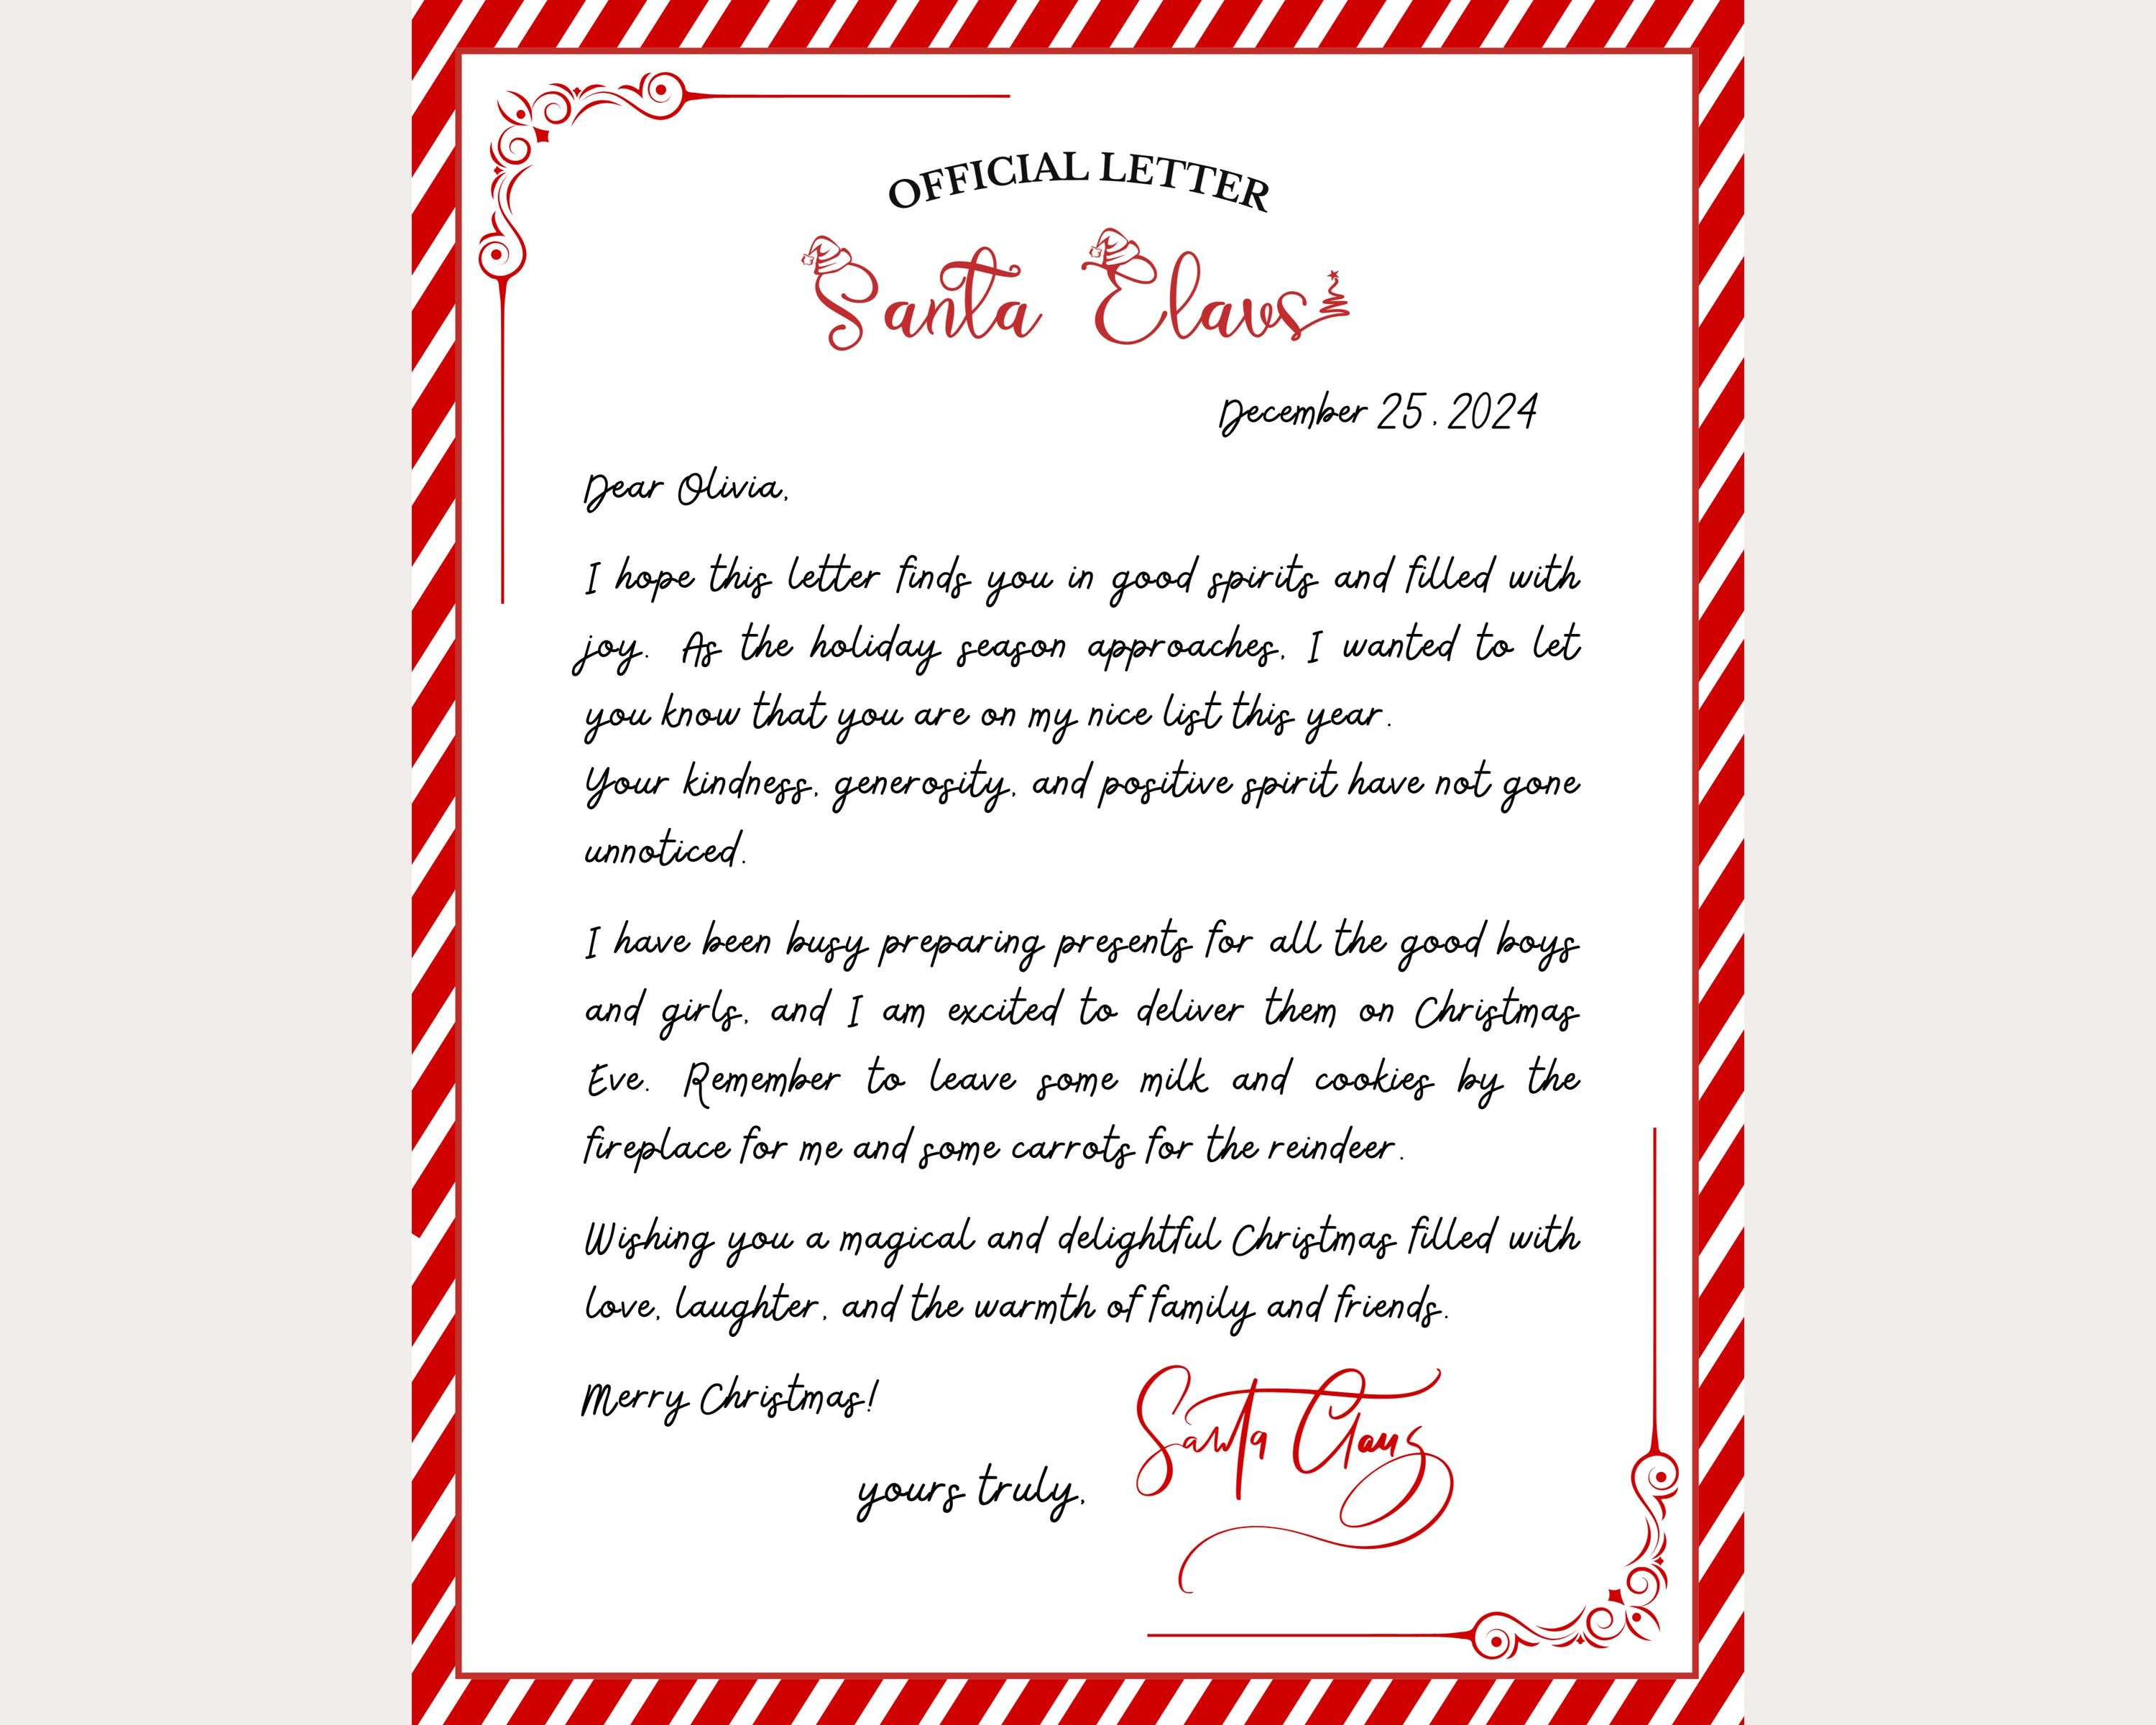 OFFICIAL LETTER
Santa Claus
December 25, 2024
Dear Olivia,
I hope this letter finds you in good spirits and filled with
joy. As the holiday season approaches, I wanted to let
you know that you are on my nice list this year.
Your kindness, generosity, and positive spirit have not gone
unnoticed.
I have been busy preparing presents for all the good boys
and girls, and I am excited to deliver them on Christmas
Eve. Remember to leave some milk and cookies by the
fireplace for me and some carrots for the reindeer.
Wishing you a magical and delightful Christmas filled with
love, laughter, and the warmth of family and friends.
Merry Christmas!
yours truly,
Santa Claus